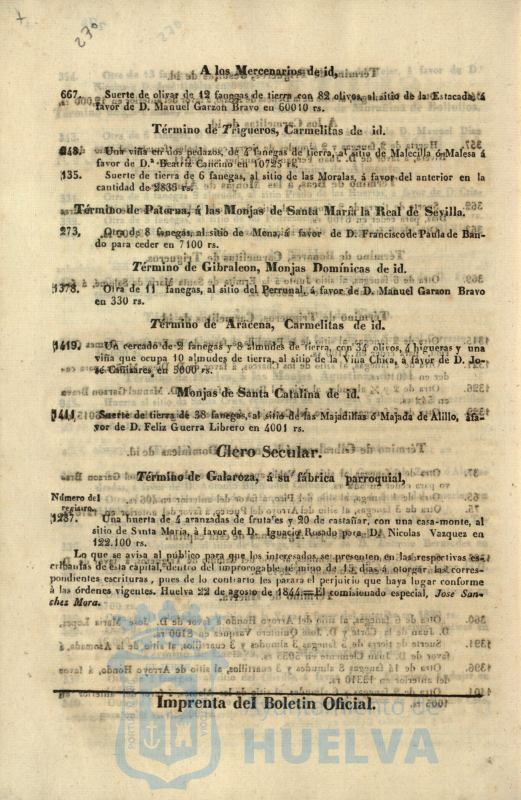 230
A los Mercenarios de id,
667. Suerte de olivar de 12 fanegas de tierra con 82 olivos, al sitio de la Estacada, á
favor de D. Manuel Garzon Bravo en 60010 rs.
Término de Trigueros, Carmelitas de id.
248. Una viña en dos pedazos, de 4 fanegas de tierra, al sitio de Malecilla ó Malesa á
favor de D.ª Beatriz Cancino en 10725 rs.
135. Suerte de tierra de 6 fanegas, al sitio de las Moralas, á favor del anterior en la
cantidad de 2836 rs.
Término de Paterna, á las Monjas de Santa María la Real de Sevilla.
273, Otro de 8 fanegas, al sitio de Mena, á favor de D. Francisco de Paula de Ban-
do para ceder en 7100 rs.
Término de Gibraleon, Monjas Domínicas de id.
1378. Otra de 11 fanegas, al sitio del Perrunal, á favor de D. Manuel Garzon Bravo
en 330 rs.
Término de Aracena, Carmelitas de id.
1419. Un cercado de 2 fanegas y 8 almudes de tierra, con 34 olivos, 4 higueras y una
viña que ocupa 10 almudes de tierra, al sitio de la Viña Chica, á favor de D. Jo-
sé Cañisares, en 5000 rs.
Monjas de Santa Catalina de id.
1411 Suerte de tierra de 38 fanegas, al sitio de las Majadillas ó Majada de Alillo, á fa-
vor de D. Feliz Guerra Librero en 4001 rs.
Clero Secular.
Término de Galaroza, á su fábrica parroquial,
Número del
registro.
1287. Una huerta de 4 aranzadas de frutales y 20 de castañar, con una casa-monte, al
sitio de Santa Maria, á favor de D. Ignacio Rosado para D. Nicolas Vazquez en
122.100 rs.
Lo que se avisa al público para que los interesados se presenten en las respectivas es-
cribanías de esta capital, dentro del improrogable término de 15 dias á otorgar las corres-
pondientes escrituras, pues de lo contrario les parará el perjuicio que haya lugar conforme
á las órdenes vigentes. Huelva 22 de agosto de 1844.=El comisionado especial, José San-
chez Mora.
Imprenta del Boletin Oficial.
Ayuntamiento de
HUELVA